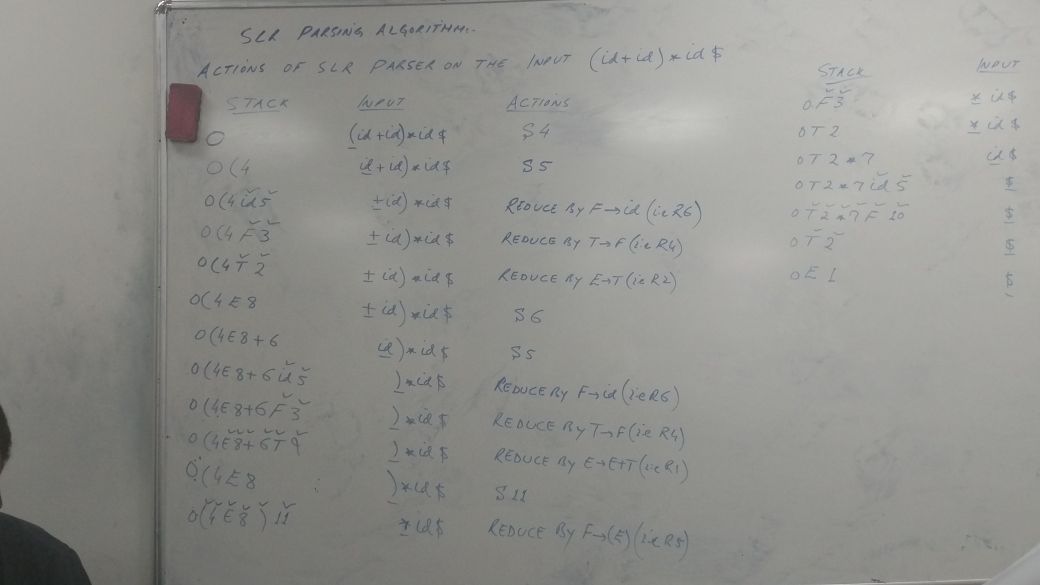 SLR PARSING ALGORITHM:-
ACTIONS OF SLR PARSER ON THE INPUT (id+id)*id$
STACK INPUT ACTIONS
0 (id+id)*id$ S4
0(4 id+id)*id$ S5
0(4id5 +id)*id$ REDUCE BY F→id (i.e R6)
0(4F3 +id)*id$ REDUCE BY T→F (i.e R4)
0(4T2 +id)*id$ REDUCE BY E→T (i.e R2)
0(4E8 +id)*id$ S6
0(4E8+6 id)*id$ S5
0(4E8+6id5 )*id$ REDUCE BY F→id (i.e R6)
0(4E8+6F3 )*id$ REDUCE BY T→F (i.e R4)
0(4E8+6T9 )*id$ REDUCE BY E→E+T (i.e R1)
0(4E8 )*id$ S11
0(4E8)11 *id$ REDUCE BY F→(E) (i.e R5)
STACK INPUT
0F3 *id$
0T2 *id$
0T2*7 id$
0T2*7id5 $
0T2*7F10 $
0T2 $
0E1 $